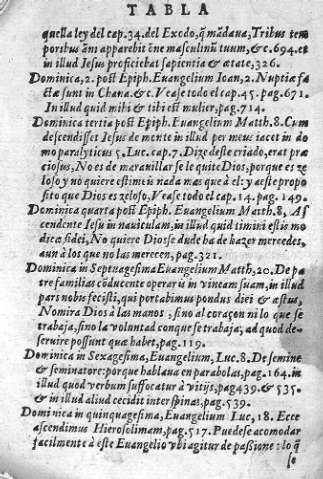 TABLA
quella ley del cap.34. del Exodo, q̃ mãdava, Tribus tem
poribus ãni apparebit õne masculinũ tuum, &c. 694. et
in illud Iesus proficiebat sapientia & ætate, 326.
Dominica, 2. post Epiph. Euangelium Ioan, 2. Nuptiæ fa
ctæ sunt in Chana. & c. Vease todo el cap. 45. pag. 671.
In illud quid mihi & tibi est mulier, pag. 714.
Dominica tertia post Epiph. Euangelium Matth. 8. Cum
descendisset Iesus de monte in illud per meus iacet in do
mo paralyticus 5. Luc. cap. 7. Dize deste criado, erat præ
ciosus, No es de marauillar se le quite Dios, porque es ze
loso y no quiere estimeis nada mas que a èl: y a este propo
sito que Dios es zeloso, Vease todo el cap. 14. pag. 149.
Dominica quarta post Epiph. Euangelium Matth. 8, As
cendente Iesu in nauiculam, in illud quid timidi estis mo
dicæ fidei, No quiere Dios se dude ha de hazer mercedes,
aun à los que no las merecen, pag. 321.
Dominica in Septuagesima Euangelium Matth, 20. De pa
tre familias cõducente operarios in vineam suam, in illud
pares nobis fecisti, qui portabimus pondus diei & æstus,
No mira Dios à las manos, sino al coraçon ni lo que se
trabaja, sino la voluntad con que se trabaja; ad quod de-
seruire possunt quæ habet, pag. 119.
Dominica in Sexagesima, Euangelium, Luc. 8. De semine
& seminatore: por que hablaua en parabolas, pag. 164. in
illud quod verbum suffocatur à vitijs, pag 439. & 535.
& in illud aliud cecidit inter spinas, pag. 539.
Dominica in quinquagesima, Euangelium Luc, 18. Ecce
ascendimus Hierosolimam, pag. 517. Puedese acomodar
facilmente à este Euangelio vbi agitur de passione: lo q̃
se